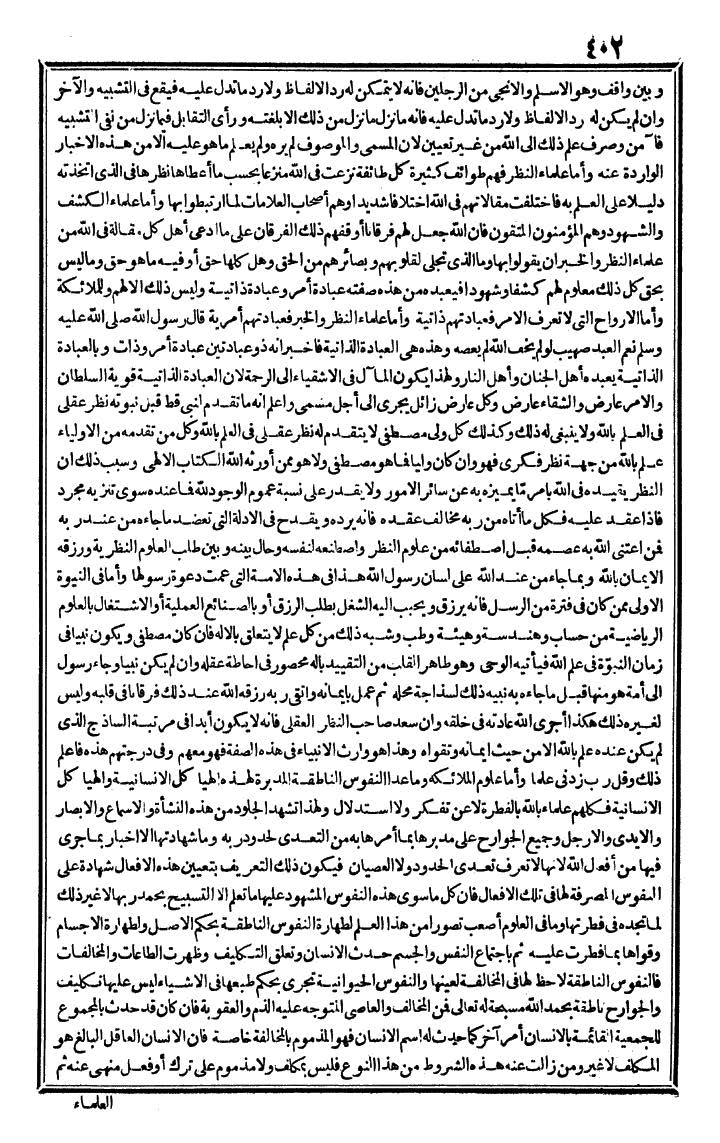 ٤٠٢
و بين واقف وهو الاسلم والانجى من الرجلين فانه لا يتمكن له رد الالفاظ ولا رد ما تدل عليه فيقع فى التشبيه والآخر
وان لم يكن له رد الالفاظ ولا رد ما تدل عليه فانه ما نزل ما نزل من ذلك الا بلغته و رأى التقابل فيما نزل من نفى التشبيه
فا من وصرف علم ذلك الى الله من غير تعيين لان المسمى والموصوف لم يره ولم يعلم ما هو عليه الا من هذه الاخبار
الواردة عنه وأما علماء النظر فهم طوائف كثيرة كل طائفة نزعت فى الله منزعا بحسب ما أعطاها نظرها فى الذى اتخذته
دليلا على العلم به فاختلفت مقالاتهم فى الله اختلافا شديدا وهم أصحاب العلامات لما ارتبطوا بها وأما علماء الكشف
والشهود وهم المؤمنون المتقون فان الله جعل لهم فرقانا أوقفهم ذلك الفرقان على ما ادعى أهل كل مقالة فى الله من
علماء النظر والخبر ان يقولوا بها وما الذى تجلى لقلوبهم و بصائرهم من الحق وهل كلها حق أو فيه ما هو حق وما ليس
بحق كل ذلك معلوم لهم كشفا وشهودا فيعبده من هذه صفته عبادة أمر وعبادة ذاتية وليس ذلك الا لهم وللملائكة
وأما الارواح التى لا تعرف الامر فعبادتهم ذاتية وأما علماء النظر والخبر فعبادتهم أمرية قال رسول الله صلى الله عليه
وسلم نعم العبد صهيب لو لم يخف الله لم يعصه وهذه هى العبادة الذاتية فاخبر انه ذو عبادتين عبادة أمر وذات و بالعبادة
الذاتية يعبده أهل الجنان وأهل النار ولهذا يكون المآل فى الاشقياء الى الرحمة لان العبادة الذاتية قوية السلطان
والامر عارض والشقاء عارض وكل عارض زائل يجرى الى أجل مسمى واعلم انه ما تقدم انبى قط قبل نبوته نظر عقلى
فى العلم بالله ولا ينبغى له ذلك وكذلك كل ولى مصطفى لا يتقدم له نظر عقلى فى العلم بالله وكل من تقدمه من الاولياء
علم بالله من جهة نظر فكرى فهو وان كان وليا فما هو مصطفى ولا هو ممن أورثه الله الكتاب الالهى وسبب ذلك ان
النظر يقيده فى الله بامر مّا يميزه به عن سائر الامور ولا يقدر على نسبة عموم الوجود لله فما عنده سوى تنزيه مجرد
فاذا عقد عليه فكل ما أتاه من ربه مخالف عقده فانه يرده و يقدح فى الادلة التى تعضد ما جاءه من عند ربه
فمن اعتنى الله به عصمه قبل اصطفائه من علوم النظر واصطنعه لنفسه وحال بينه و بين طلب العلوم النظرية ورزقه
الايمان بالله و بما جاء من عند الله على لسان رسول الله هذا فى هذه الامة التى عمت دعوة رسولها وأما فى النبوة
الاولى ممن كان فى فترة من الرسل فانه يرزق و يحبب اليه الشغل بطلب الرزق أو بالصنائع العملية أو الاشتغال بالعلوم
الرياضية من حساب وهندسة وهيئة وطب وشبه ذلك من كل علم لا يتعلق بالاله فان كان مصطفى و يكون نبيا فى
زمان النبوّة فى علم الله فيأتيه الوحى وهو طاهر القلب من التقييد باله محصور فى احاطة عقله وان لم يكن نبيا وجاء رسول
الى أمة هو منها قبل ما جاءه به نبيه ذلك لسذاجة محله ثم عمل بايمانه واتقى ربه رزقه الله عند ذلك فرقانا فى قلبه وليس
لغيره ذلك هكذا أجرى الله عادته فى خلقه وان سعد صاحب النظر العقلى فانه لا يكون أبدا فى مرتبة الساذج الذى
لم يكن عنده علم بالله الا من حيث ايمانه وتقواه وهذا هو وارث الانبياء فى هذه الصفة فهو معهم وفى درجتهم هذه فاعلم
ذلك وقل رب زدنى علما وأما علوم الملائكة وما عدا النفوس الناطقة المدبرة لهذه الهيا كل الانسانية والهيا كل
الانسانية فكلهم علماء بالله بالفطرة لا عن تفكر ولا استدلال ولهذا تشهد الجلود من هذه النشأة والاسماع والابصار
والايدى والارجل وجميع الجوارح على مدبرها بما أمرها به من التعدى لحدود ربه وما شهادتها الا اخبار بما جرى
فيها من أفعل الله لانها لا تعرف تعدى الحدود ولا العصيان فيكون ذلك التعريف بتعيين هذه الافعال شهادة على
النفوس المصرفة لها فى تلك الافعال فان كل ما سوى هذه النفوس المشهود عليها ما تعلم الا التسبيح بحمد ربها لا غير ذلك
لما تجده فى فطرتها وما فى العلوم أصعب تصورا من هذا العلم لطهارة النفوس الناطقة بحكم الاصل ولطهارة الاجسام
وقواها بما فطرت عليه ثم باجتماع النفس والجسم حدث الانسان وتعلق التكليف وظهرت الطاعات والمخالفات
فالنفوس الناطقة لا حظ لها فى المخالفة لعينها والنفوس الحيوانية تجرى بحكم طبعها فى الاشياء ليس عليها تكليف
والجوارح ناطقة بحمد الله مسبحة له تعالى فمن المخالف والعاصى المتوجه عليه الذم والعقوبة فان كان قد حدث بالمجموع
للجمعية القائمة بالانسان أمر آخر كما حدث له اسم الانسان فهو المذموم بالمخالفة خاصة فان الانسان العاقل البالغ هو
المكلف لا غير ومن زالت عنه هذه الشروط من هذا النوع فليس بمكلف ولا مذموم على ترك أو فعل منهى عنه ثم
العلماء